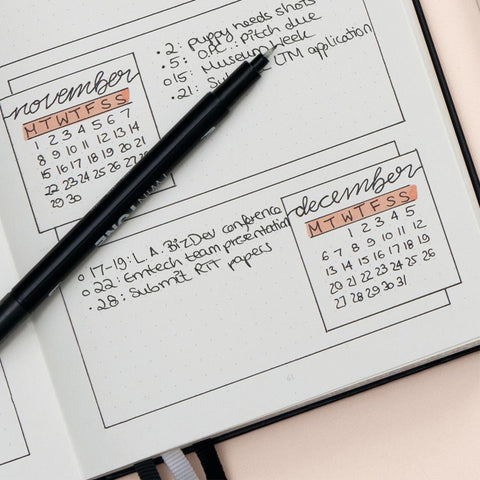 • 2: puppy needs shots
• 5: pitch due
o 15: Museum Week
• 21: UTM application
november
M T W T F S S
1 2 3 4 5 6 7
8 9 10 11 12 13 14
15 16 17 18 19 20 21
22 23 24 25 26 27
29 30
december
M T W T F S S
1 2 3 4 5
6 7 8 9 10 11 12
13 14 15 16 17 18 19
20 21 22 23 24 25 26
27 28 29 30 31
o 17-19: L.A. BizDev conference
o 22: Emtech team presentation
• 28: Submit RIT papers
61